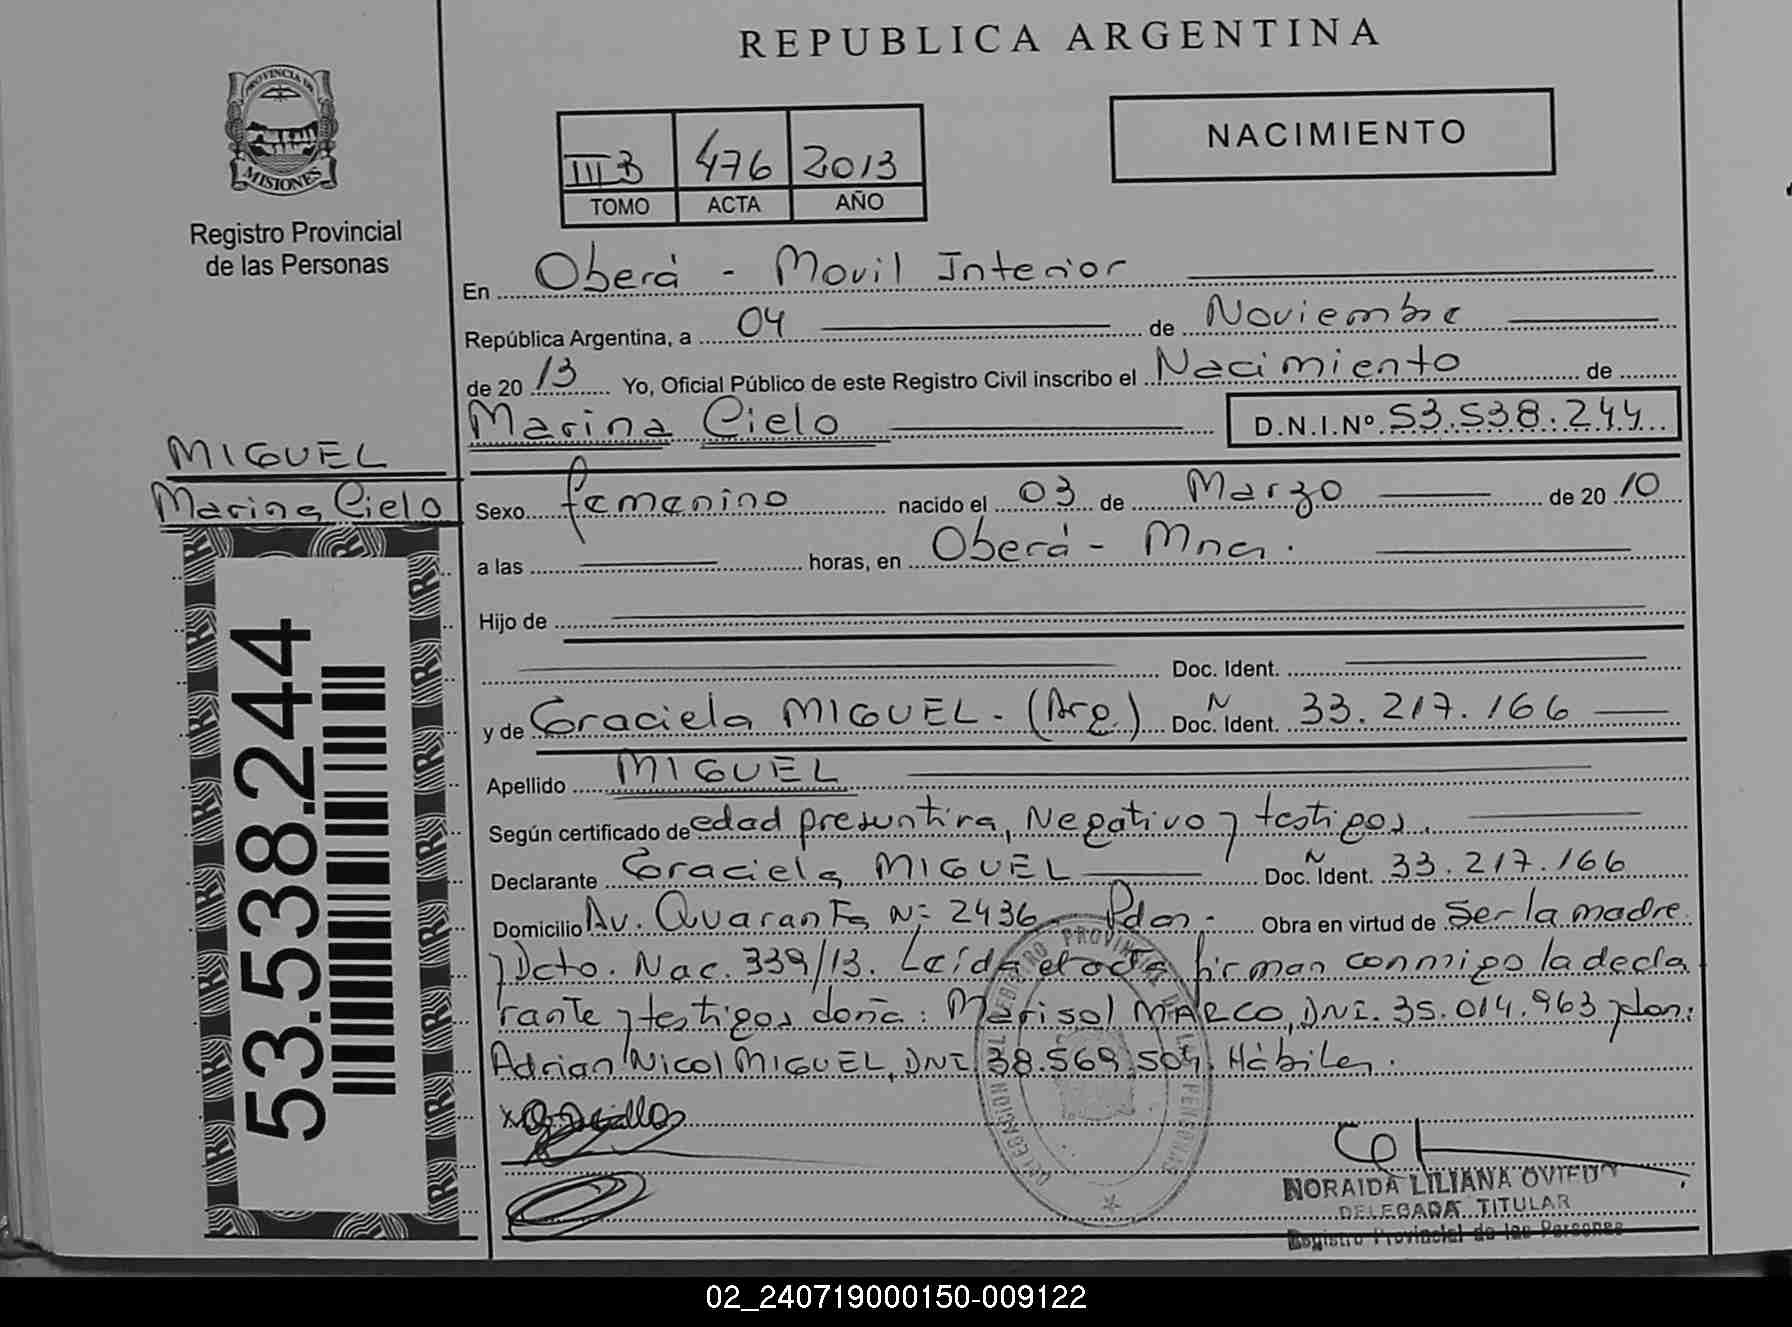 REPUBLICA ARGENTINA
PROVINCIA DE
MISIONES
Registro Provincial
de las Personas
III B 476 2013
TOMO ACTA AÑO
NACIMIENTO
En Oberá - Movil Interior
República Argentina, a 04 de Noviembre
de 2013 Yo, Oficial Público de este Registro Civil inscribo el Nacimiento de
Marina Cielo D.N.I.Nº 53.538.244
MIGUEL
Marina Cielo
53.538.244
Sexo femenino nacido el 03 de Marzo de 2010
a las horas, en Oberá - Mnes.
Hijo de
Doc. Ident.
y de Graciela MIGUEL. (Arg.) Doc. Ident. 33.217.166
Apellido MIGUEL
Según certificado de edad presuntiva, Negativo y testigos.
Declarante Graciela MIGUEL Doc. Ident. 33.217.166
Domicilio Av. Quaranta Nº 2436 Pdas. Obra en virtud de Ser la madre
y Dcto. Nac. 339/13. Leída el acta firman conmigo la decla
rante y testigos doña: Marisol MARCO, DNI. 35.014.963 y don:
Adrian Nicol MIGUEL, DNI 38.569.504. Hábiles.
NORAIDA LILIANA OVIEDO
DELEGADA TITULAR
Registro Provincial de las Personas
02_240719000150-009122